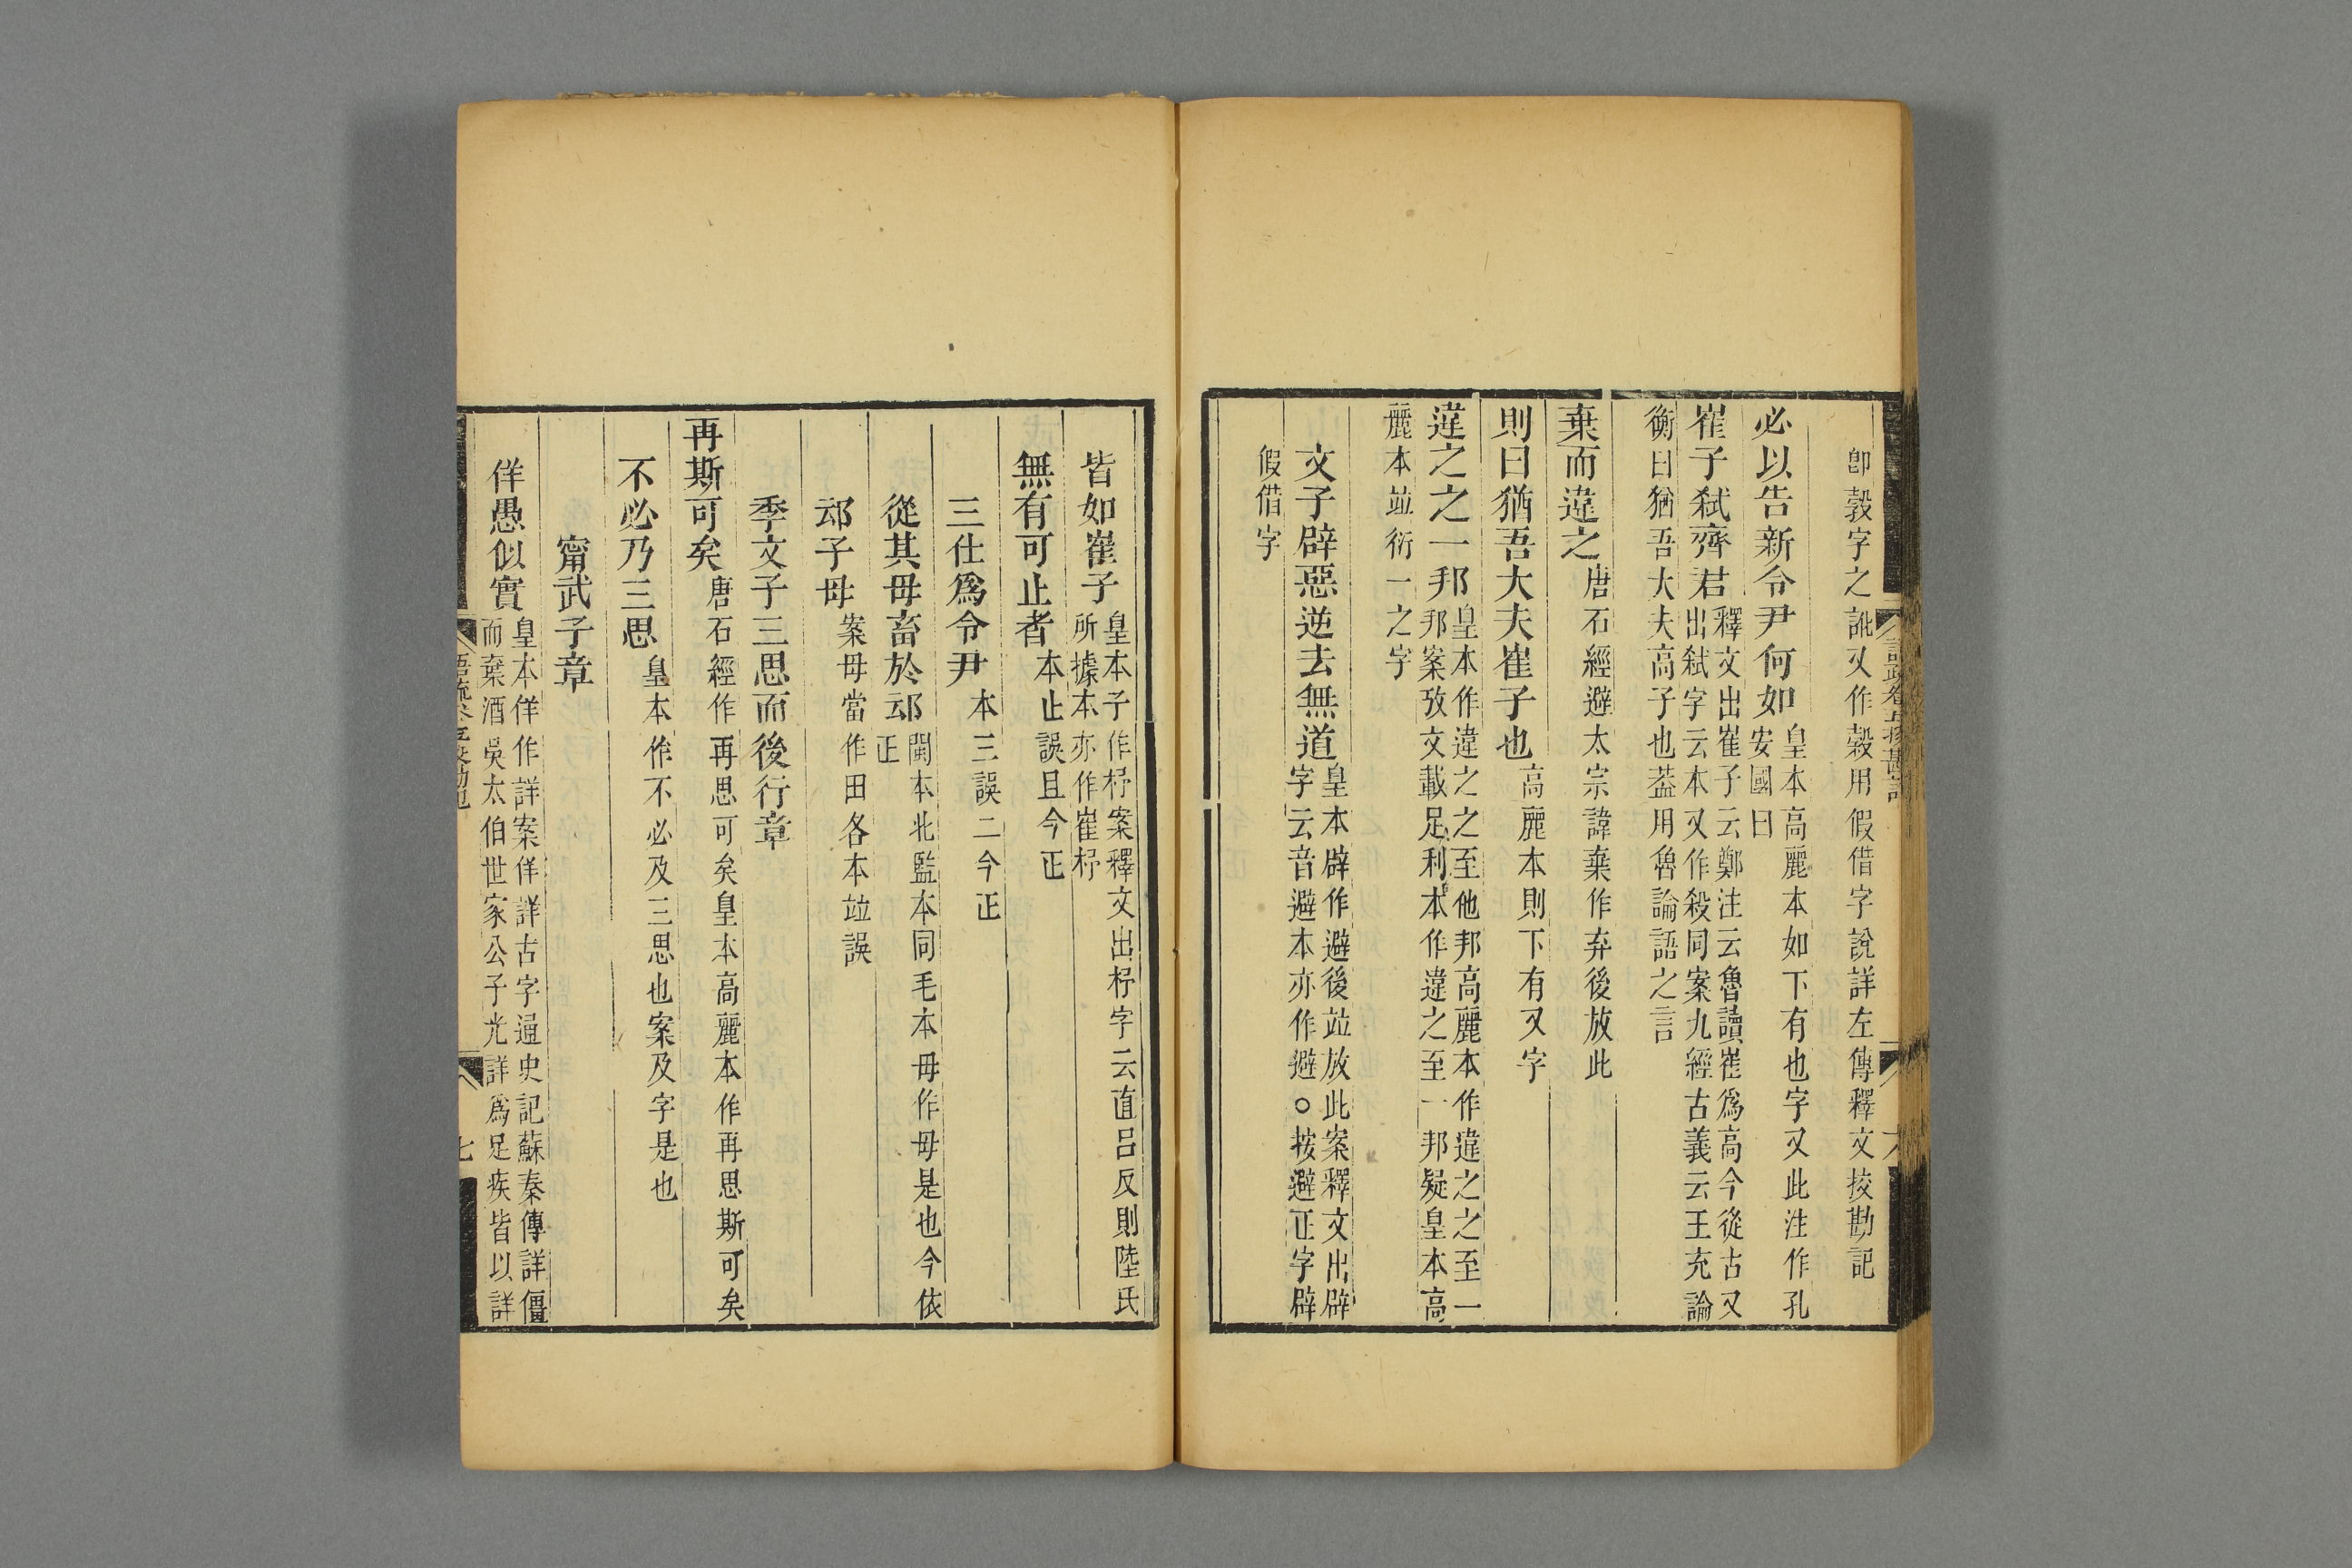 卽㝅字之訛又作㝅用假借字說詳左傳釋文挍勘記
必以告新令尹何如皇本高麗本如下有也字又此注作孔
安國曰
崔子弑齊君釋文出崔子云鄭注云魯讀崔爲高今從古又
出弑字云本又作殺同案九經古義云王充論
衡曰猶吾大夫高子也葢用魯論語之言
棄而違之唐石經避太宗諱棄作弃後放此
則曰猶吾大夫崔子也高麗本則下有又字
違之之一邦皇本作違之之至他邦高麗本作違之之至一
邦案攷文載足利本作違之至一邦疑皇本高
麗本竝衍一之字
文子辟惡逆去無道皇本辟作避後竝放此案釋文出辟
字云音避本亦作避○按避正字辟
假借字
皆如崔子皇本子作杼案釋文出杼字云直呂反則陸氏
所據本亦作崔杼
無有可止者本止誤且今正
三仕爲令尹本三誤二今正
從其毋畜於䢵閩本北監本同毛本毋作母是也今依
正
䢵子母案母當作田各本竝誤
季文子三思而後行章
再斯可矣唐石經作再思可矣皇本高麗本作再思斯可矣
不必乃三思皇本作不必及三思也案及字是也
甯武子章
佯愚似實皇本佯作詳案佯詳古字通史記蘇秦傳詳僵
而棄酒吳太伯世家公子光詳爲足疾皆以詳
七